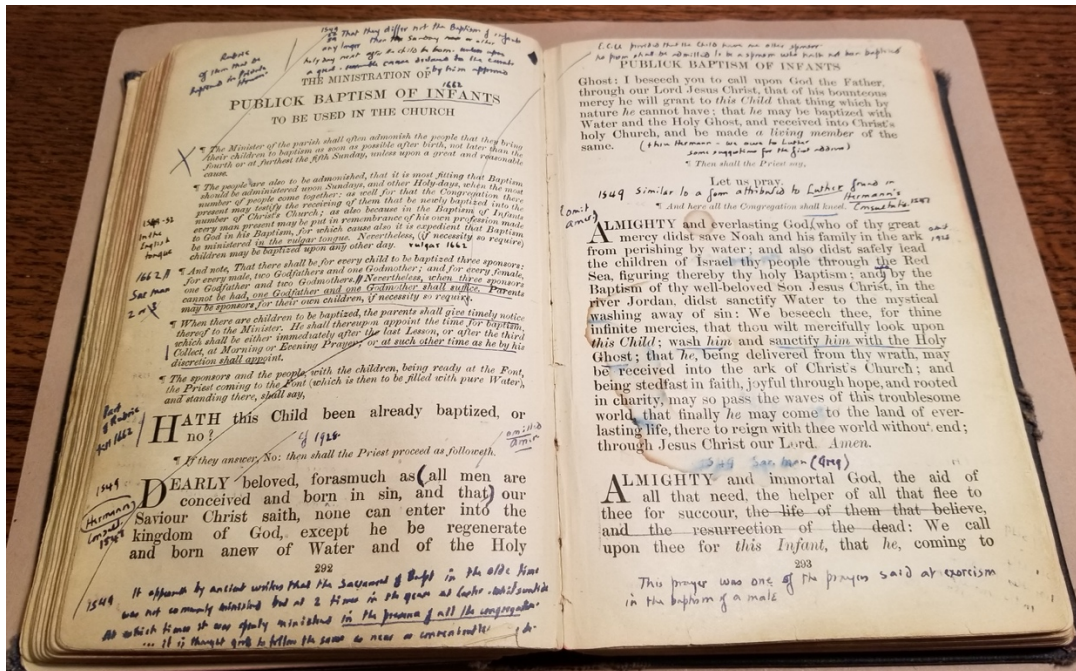 1549
That they differ not the Baptism of infants
any longer than the Sunday next or other
holy day next after the child be born. unless upon
a great
by him approved
Rubric
of them that be
baptized in Private
Houses
THE MINISTRATION OF
1662
PUBLICK BAPTISM OF INFANTS
TO BE USED IN THE CHURCH
X
¶ The Minister of the parish shall often admonish the people that they bring
their children to baptism as soon as possible after birth, not later than the
fourth or at furthest the fifth Sunday, unless upon a great and reasonable
cause.
¶ The people are also to be admonished, that it is most fitting that Baptism
should be administered upon Sundays, and other Holy-days, when the most
number of people come together: as well for that the Congregation there
present may testify the receiving of them that be newly baptized into the
number of Christ's Church; as also because in the Baptism of Infants
every man present may be put in remembrance of his own profession made
to God in his Baptism, for which cause also it is expedient that Baptism
be ministered in the vulgar tongue. Nevertheless, (if necessity so require)
children may be baptized upon any other day. vulgar 1662
1549-52
in the
English
tongue
¶ And note, That there shall be for every child to be baptized three sponsors:
for every male, two Godfathers and one Godmother; and for every female,
one Godfather and two Godmothers. // Nevertheless, when three sponsors
cannot be had, one Godfather and one Godmother shall suffice. Parents
may be sponsors for their own children, if necessity so require.
1662 //
¶ When there are children to be baptized, the parents shall give timely notice
thereof to the Minister. He shall thereupon appoint the time for baptism,
which shall be either immediately after the last Lesson, or after the third
Collect, at Morning or Evening Prayer, or at such other time as he by his
discretion shall appoint.
¶ The sponsors and the people, with the children, being ready at the Font,
the Priest coming to the Font (which is then to be filled with pure Water),
and standing there, shall say,
Part
of Rubric
1662
HATH this Child been already baptized, or
no?
of 1928
omitted
Amer
¶ If they answer, No: then shall the Priest proceed as followeth.
1549
(Hermann)
DEARLY beloved, forasmuch as (all men are
conceived and born in sin, and that) our
Saviour Christ saith, none can enter into the
kingdom of God, except he be regenerate
and born anew of Water and of the Holy
292
1549 It appears by ancient writers that the Sacrament of Bapt in the olde time
was not commonly ministred but at 2 times in the year at Easter & Whitsuntide
At which times it was openly ministred in the presence of all the congregation.
... it is thought good to follow the same as near as conveniently
provided that the Child have no other sponsor
PUBLICK BAPTISM OF INFANTS
Ghost: I beseech you to call upon God the Father,
through our Lord Jesus Christ, that of his bounteous
mercy he will grant to this Child that thing which by
nature he cannot have; that he may be baptized with
Water and the Holy Ghost, and received into Christ's
holy Church, and be made a living member of the
same.
¶ Then shall the Priest say,
Let us pray.
1549 Similar to a form attributed to Luther found in
Hermann's
¶ And here all the Congregation shall kneel.
(omit
Amer)
ALMIGHTY and everlasting God, who of thy great
mercy didst save Noah and his family in the ark
from perishing by water; and also didst safely lead
the children of Israel thy people through the Red
Sea, figuring thereby thy holy Baptism; and by the
Baptism of thy well-beloved Son Jesus Christ, in the
river Jordan, didst sanctify Water to the mystical
washing away of sin: We beseech thee, for thine
infinite mercies, that thou wilt mercifully look upon
this Child; wash him and sanctify him with the Holy
Ghost; that he, being delivered from thy wrath, may
be received into the ark of Christ's Church; and
being stedfast in faith, joyful through hope, and rooted
in charity, may so pass the waves of this troublesome
world, that finally he may come to the land of ever-
lasting life, there to reign with thee world without end;
through Jesus Christ our Lord. Amen.
1549 Sac man (Greg)
ALMIGHTY and immortal God, the aid of
all that need, the helper of all that flee to
thee for succour, the life of them that believe,
and the resurrection of the dead: We call
upon thee for this Infant, that he, coming to
293
This prayer was one of the prayers said at exorcism
in the baptism of a male